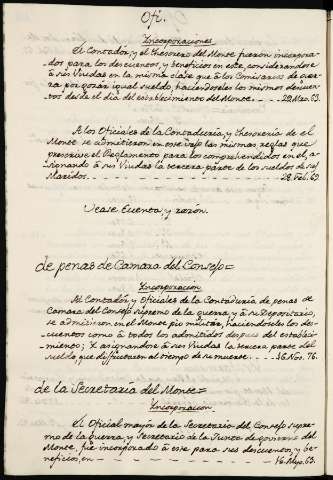 Ofi.
Incorporaciones
El Contador, y el Thesorero del Monte fueron incorpora-
dos para los descuentos, y beneficios en este, considerandose
à sus Viudas en la misma clase que à los Comisarios de Gue-
rra por gozar igual sueldo, haciendoseles los mismos descuen-
tos desde el dia del establecimiento del Monte 29. Mzo. 63.
A los Oficiales de la Contaduria, y Thesoreria de el
Monte se admitieron en este bajo las mismas reglas que
prescrive el Reglamento para los comprehendidos en el, a-
signando à sus Viudas la tercera parte de los sueldos de sus
Maridos. 28. Feb. 69.
Vease Cuenta y razon.
de penas de Camara del Consejo=
Incorporacion
Al Contador, y Oficiales de la Contaduria de penas de
Camara del Consejo supremo de la guerra, y à su Depositario,
se admitieron en el Monte pio militar, haciendoseles los des-
cuentos como à todos los admitidos despues del estableci-
miento; y asignandose à sus Viudas la tercera parte del
sueldo que disfrutaren al tiempo de su muerte 16. Nov. 76.
de la Secretaria del Monte=
Incorporacion
El Oficial mayor de la Secretaria del Consejo supre-
mo de la guerra, y Secretario de la Junta de govierno del
Monte, fue incorporado à este para sus descuentos, y be-
neficios, en 16. Mayo. 63.